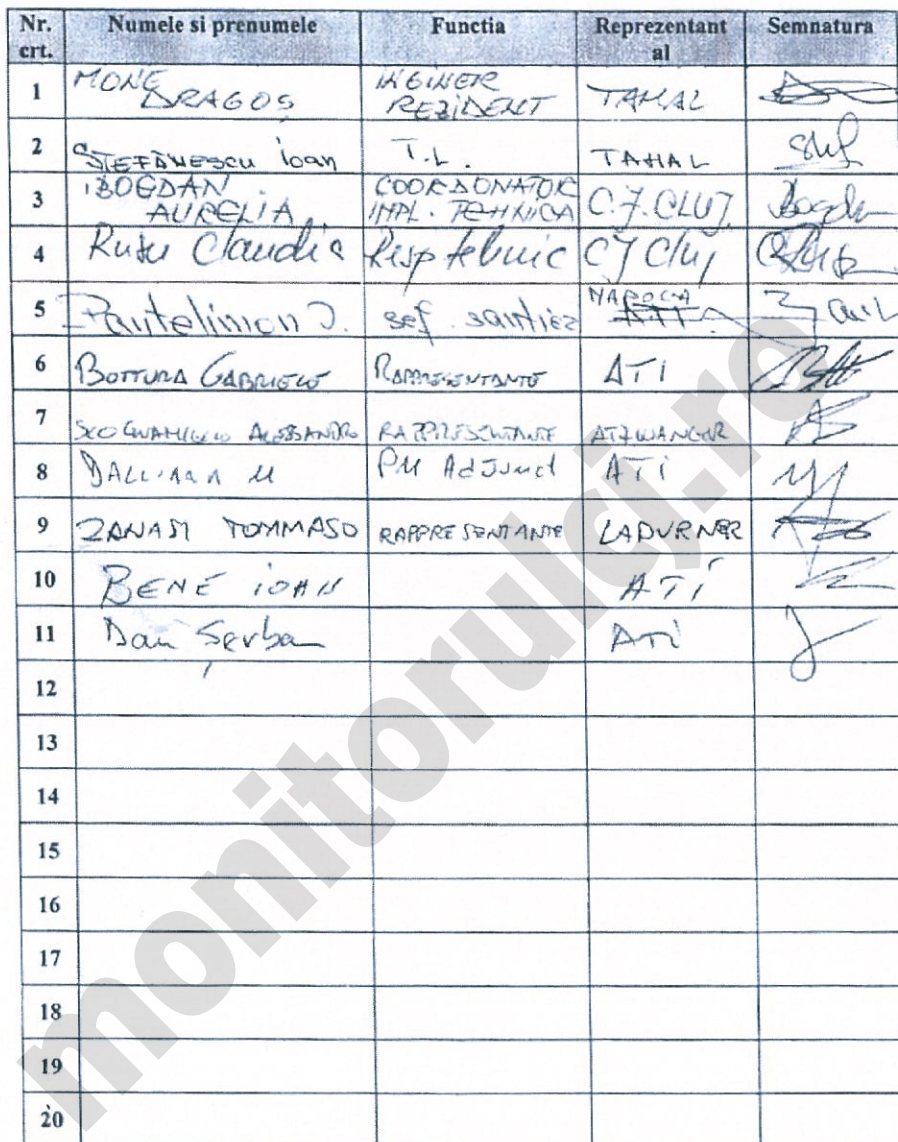 Nr. crt. Numele si prenumele Functia Reprezentant al Semnatura
1 MONE DRAGOȘ INGINER REZIDENT TAHAL
2 ȘTEFĂNESCU Ioan T.L. TAHAL
3 BOGDAN AURELIA COORDONATOR IMPL. TEHNICA C.J. CLUJ
4 Rusu Claudia Resp tehnic CJ Cluj
5 Pantelimon J. sef santier NAPOCA ATI
6 BOTTURA GABRIELE RAPPRESENTANTE ATI
7 ALESSANDRO RAPPRESENTANTE
8 M PM Adjunct ATI
9 ZANASI TOMMASO RAPPRESENTANTE LADURNER
10 BENE IOAN ATI
11 Dan Șerban ATI
12
13
14
15
16
17
18
19
20
monitorulcj.ro